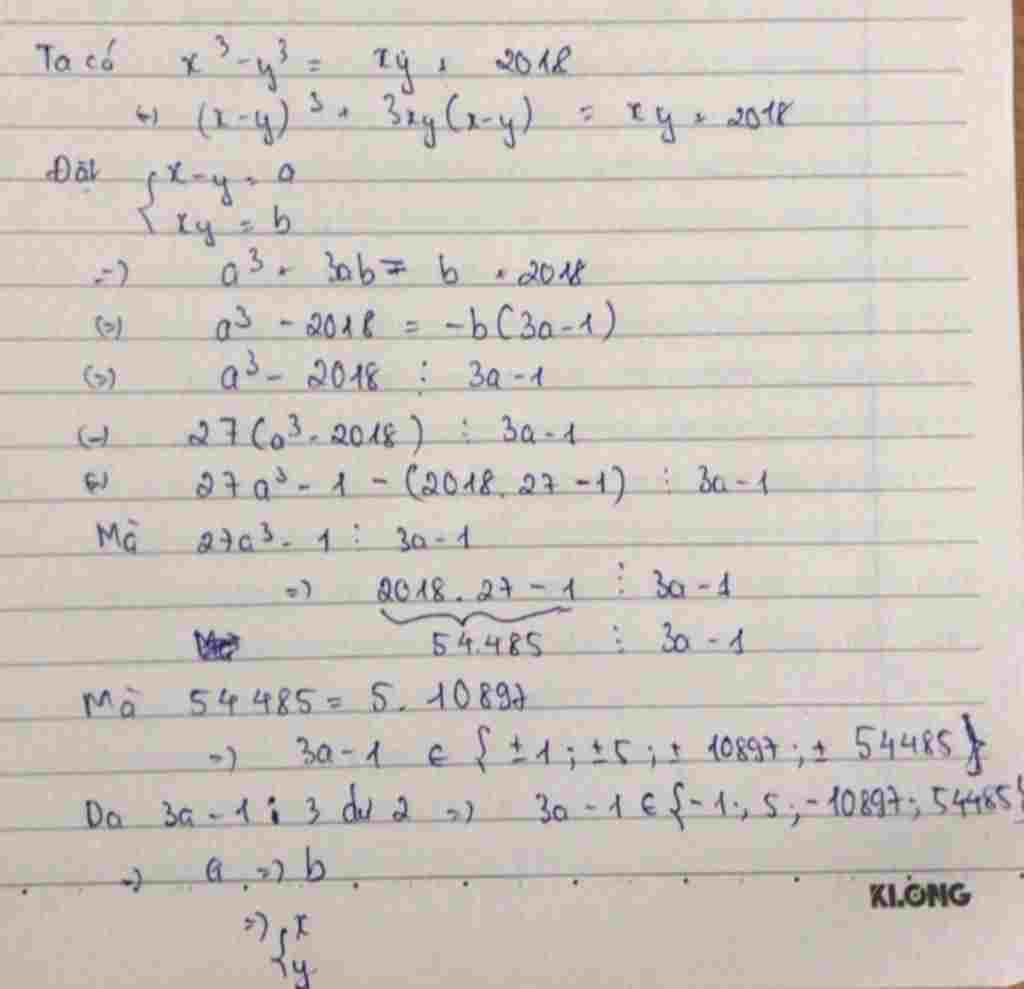 Ta có x³ - y³ = xy + 2018
(=) (x-y)³ + 3xy(x-y) = xy + 2018
Đặt { x-y = a
xy = b
=) a³ + 3ab = b + 2018
(=) a³ - 2018 = -b(3a-1)
(=) a³ - 2018 ⋮ 3a-1
(=) 27(a³ - 2018) ⋮ 3a-1
(=) 27a³ - 1 - (2018.27 - 1) ⋮ 3a-1
Mà 27a³ - 1 ⋮ 3a-1
=) 2018.27 - 1 ⋮ 3a-1
54.485 ⋮ 3a-1
Mà 54485 = 5.10897
=) 3a-1 ∈ {±1; ±5; ±10897; ±54485}
Da 3a-1 : 3 dư 2 =) 3a-1 ∈ {-1; 5; -10897; 54485}
=) a =) b
KLONG
=) { x
y